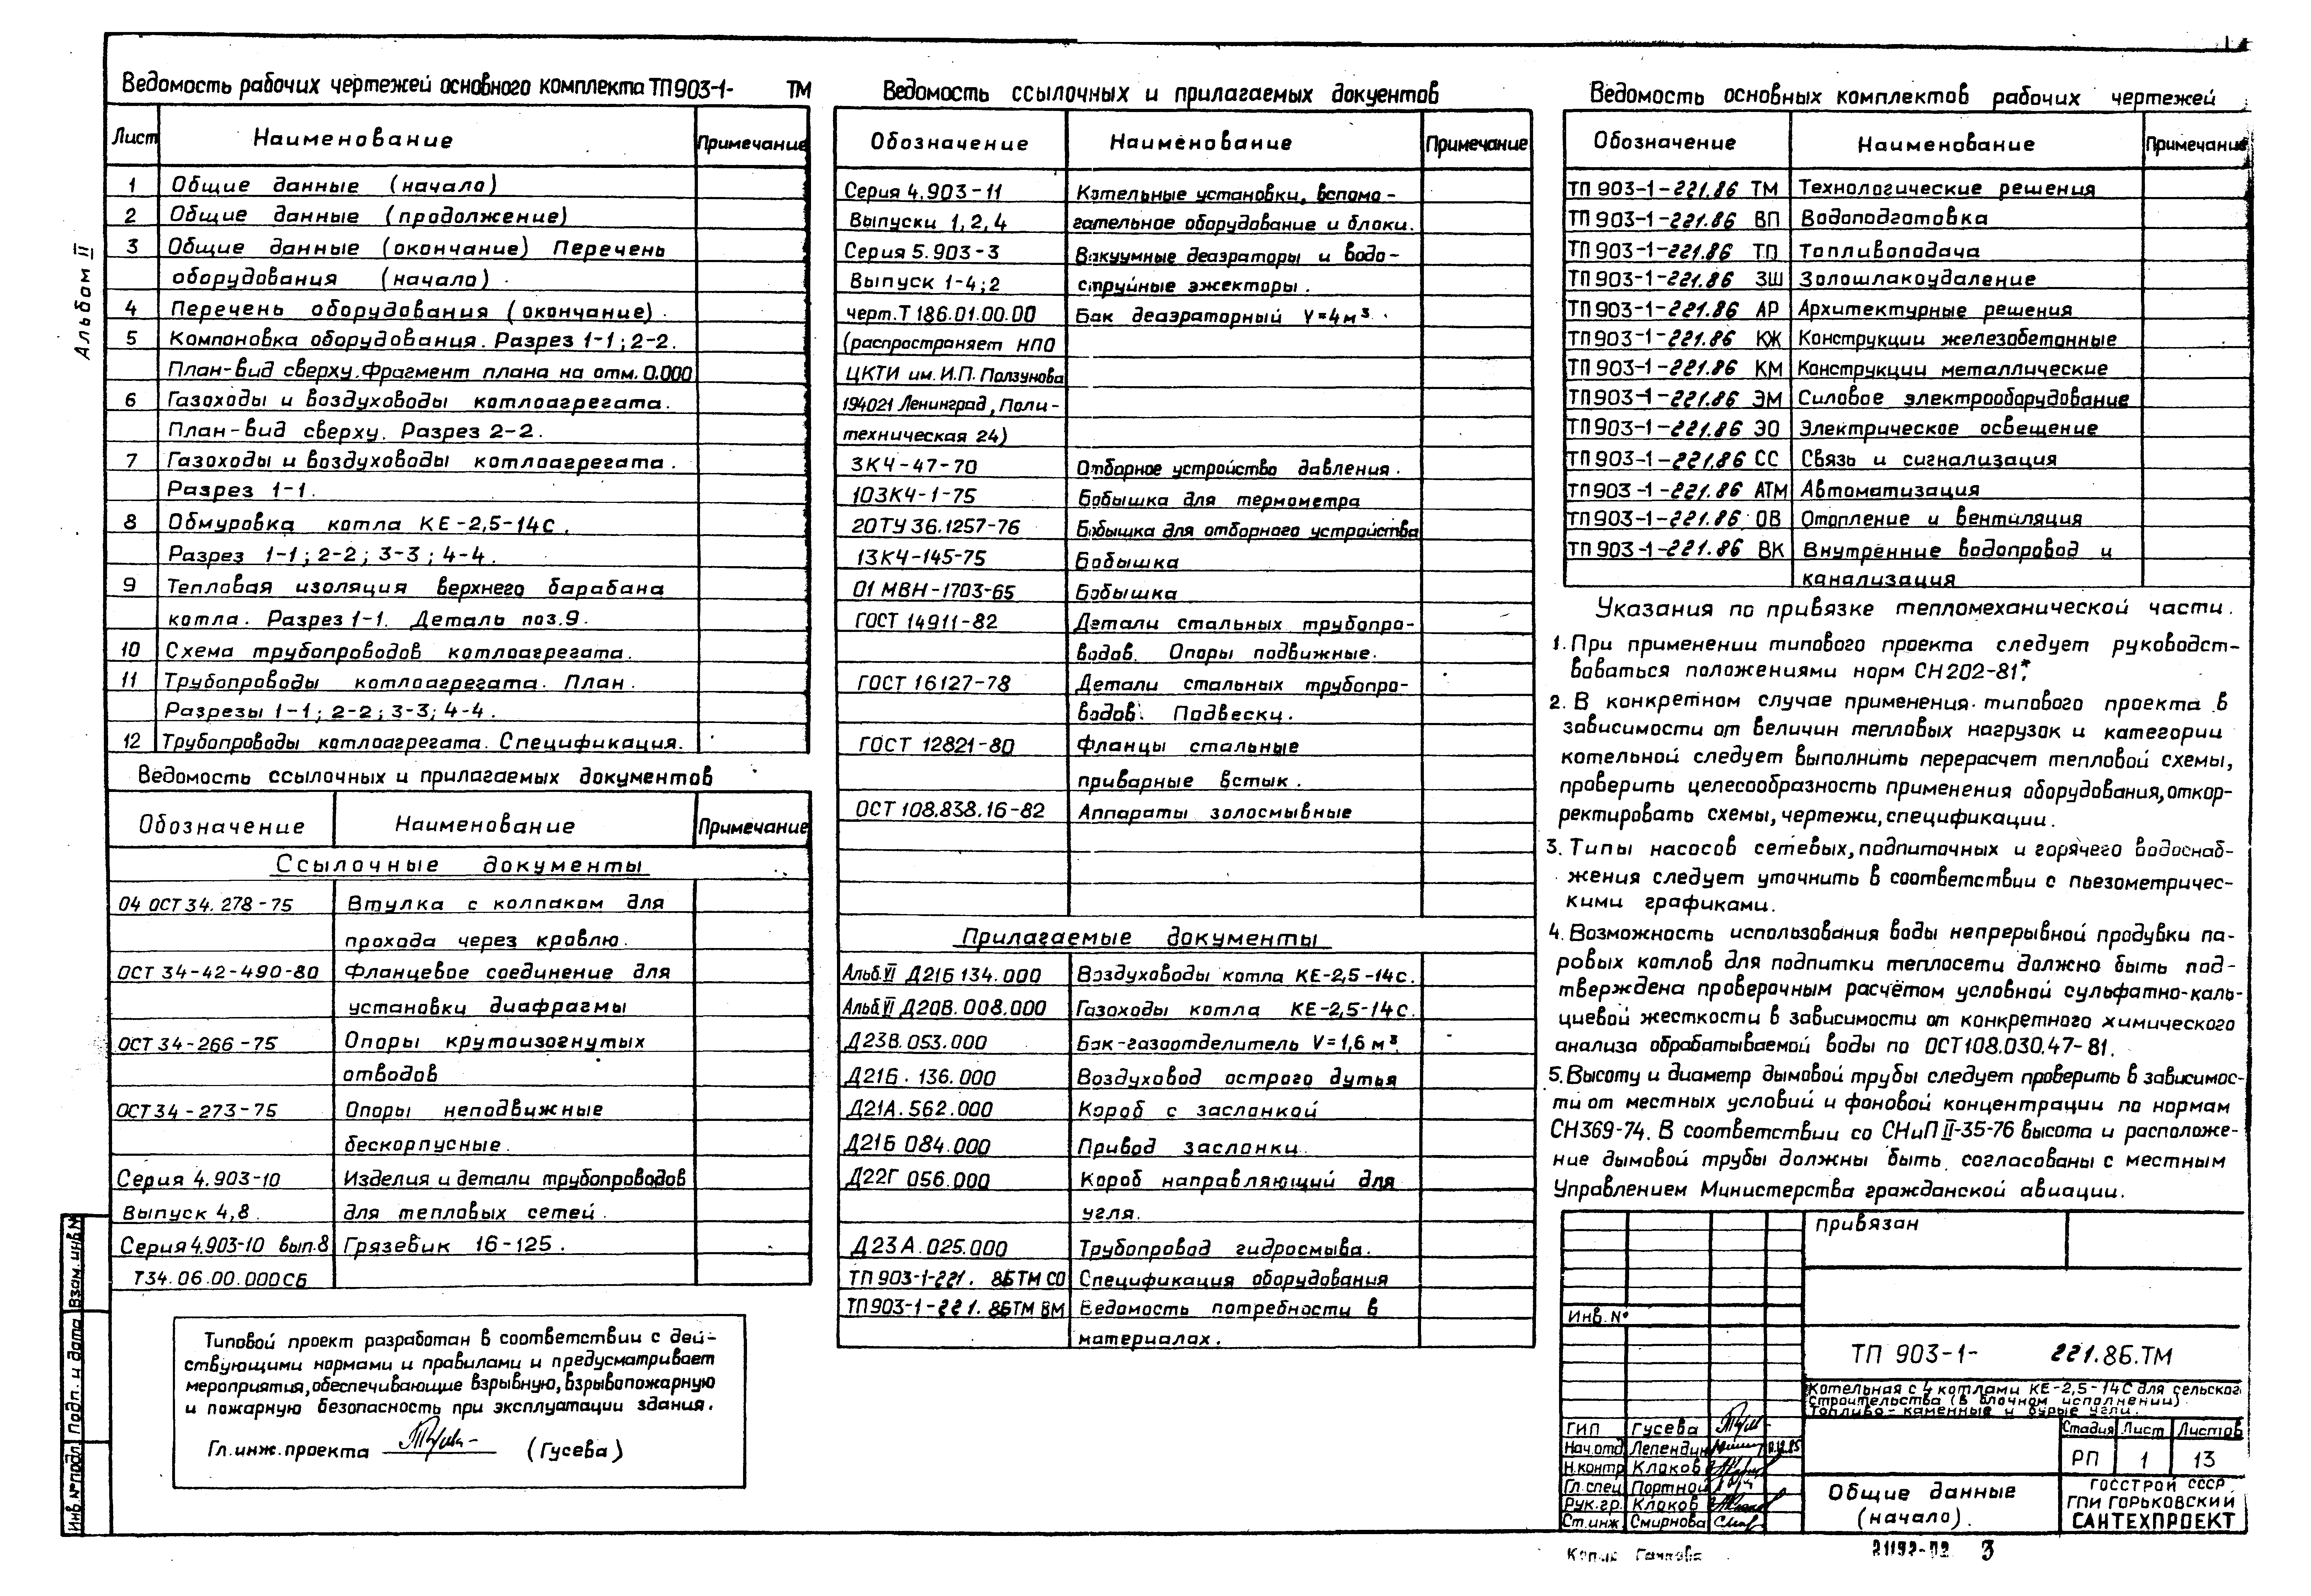 Альбом II
Ведомость рабочих чертежей основного комплекта ТП903-1- ТМ
Лист Наименование Примечание
1 Общие данные (начало)
2 Общие данные (продолжение)
3 Общие данные (окончание) Перечень
оборудования (начало).
4 Перечень оборудования (окончание).
5 Компоновка оборудования. Разрез 1-1; 2-2.
План-вид сверху. Фрагмент плана на отм. 0.000
6 Газоходы и воздуховоды котлоагрегата.
План-вид сверху. Разрез 2-2.
7 Газоходы и воздуховоды котлоагрегата.
Разрез 1-1.
8 Обмуровка котла КЕ-2,5-14С.
Разрез 1-1; 2-2; 3-3; 4-4.
9 Тепловая изоляция верхнего барабана
котла. Разрез 1-1. Деталь поз.9.
10 Схема трубопроводов котлоагрегата.
11 Трубопроводы котлоагрегата. План.
Разрезы 1-1; 2-2; 3-3; 4-4.
12 Трубопроводы котлоагрегата. Спецификация.
Ведомость ссылочных и прилагаемых документов
Обозначение Наименование Примечание
Ссылочные документы
04 ОСТ 34. 278-75 Втулка с колпаком для
прохода через кровлю.
ОСТ 34-42-490-80 Фланцевое соединение для
установки диафрагмы
ОСТ 34-266-75 Опоры крутоизогнутых
отводов
ОСТ 34-273-75 Опоры неподвижные
бескорпусные.
Серия 4.903-10 Изделия и детали трубопроводов
Выпуск 4,8. для тепловых сетей.
Серия 4.903-10 вып.8 Грязевик 16-125.
Т34.06.00.000СБ
Типовой проект разработан в соответствии с дей-
ствующими нормами и правилами и предусматривает
мероприятия, обеспечивающие взрывную, взрывопожарную
и пожарную безопасность при эксплуатации здания.
Гл.инж.проекта (Гусева)
Взам. инв.№
Подп. и дата
Инв.№ подл.
Ведомость ссылочных и прилагаемых докуентов
Обозначение Наименование Примечание
Серия 4.903-11 Котельные установки, вспомо-
Выпуски 1,2,4 гательное оборудование и блоки.
Серия 5.903-3 Вакуумные деаэраторы и водо-
Выпуск 1-4;2 струйные эжекторы.
черт.Т 186.01.00.00 Бак деаэраторный V=4м³.
(распространяет НПО
ЦКТИ им. И.П. Ползунова
194021 Ленинград, Поли-
техническая 24)
3К4-47-70 Отборное устройство давления.
103К4-1-75 Бобышка для термометра
20ТУ 36.1257-76 Бобышка для отборного устройства
13К4-145-75 Бобышка
01 МВН-1703-65 Бобышка
ГОСТ 14911-82 Детали стальных трубопро-
водов. Опоры подвижные.
ГОСТ 16127-78 Детали стальных трубопро-
водов. Подвески.
ГОСТ 12821-80 Фланцы стальные
приварные встык.
ОСТ 108.838.16-82 Аппараты золосмывные
Прилагаемые документы
Альб.VI Д21Б 134.000 Воздуховоды котла КЕ-2,5-14С.
Альб.VI Д20В.008.000 Газоходы котла КЕ-2,5-14С.
Д23В.053.000 Бак-газоотделитель V=1,6 м³.
Д21Б.136.000 Воздуховод острого дутья
Д21А.562.000 Короб с заслонкой
Д21Б 084.000 Привод заслонки
Д22Г 056.000 Короб направляющий для
угля.
Д23А.025.000 Трубопровод гидросмыва.
ТП 903-1-221. 86 ТМ СО Спецификация оборудования
ТП903-1-221. 86 ТМ ВМ Ведомость потребности в
материалах.
Ведомость основных комплектов рабочих чертежей
Обозначение Наименование Примечание
ТП 903-1-221.86 ТМ Технологические решения
ТП 903-1-221.86 ВП Водоподготовка
ТП 903-1-221.86 ТП Топливоподача
ТП 903-1-221.86 ЗШ Золошлакоудаление
ТП 903-1-221.86 АР Архитектурные решения
ТП 903-1-221.86 КЖ Конструкции железобетонные
ТП 903-1-221.86 КМ Конструкции металлические
ТП903-1-221.86 ЭМ Силовое электрооборудование
ТП 903-1-221.86 ЭО Электрическое освещение
ТП 903-1-221.86 СС Связь и сигнализация
ТП903-1-221.86 АТМ Автоматизация
ТП903-1-221.86 ОВ Отопление и вентиляция
ТП 903-1-221.86 ВК Внутренние водопровод и
канализация
Указания по привязке тепломеханической части.
1. При применении типового проекта следует руководст-
воваться положениями норм СН 202-81*.
2. В конкретном случае применения типового проекта в
зависимости от величин тепловых нагрузок и категории
котельной следует выполнить перерасчет тепловой схемы,
проверить целесообразность применения оборудования, откор-
ректировать схемы, чертежи, спецификации.
3. Типы насосов сетевых, подпиточных и горячего водоснаб-
жения следует уточнить в соответствии с пьезометричес-
кими графиками.
4. Возможность использования воды непрерывной продувки па-
ровых котлов для подпитки теплосети должно быть под-
тверждена проверочным расчётом условной сульфатно-каль-
циевой жесткости в зависимости от конкретного химического
анализа обрабатываемой воды по ОСТ108.030.47-81.
5. Высоту и диаметр дымовой трубы следует проверить в зависимос-
ти от местных условий и фоновой концентрации по нормам
СН369-74. В соответствии со СНиП II-35-76 высота и расположе-
ние дымовой трубы должны быть согласованы с местным
Управлением Министерства гражданской авиации.
привязан
Инв. №
ТП 903-1- 221.86.ТМ
Котельная с 4 котлами КЕ-2,5-14С для сельского
строительства (в блочном исполнении).
Топливо - каменные и бурые угли.
ГИП Гусева
Нач.отд Лепендин
Н.контр Клоков
Гл.спец Портной
Рук.гр. Клоков
Ст.инж. Смирнова
Стадия Лист Листов
РП 1 13
Общие данные
(начало).
ГОССТРОЙ СССР
ГПИ ГОРЬКОВСКИЙ
САНТЕХПРОЕКТ
21192-02 3